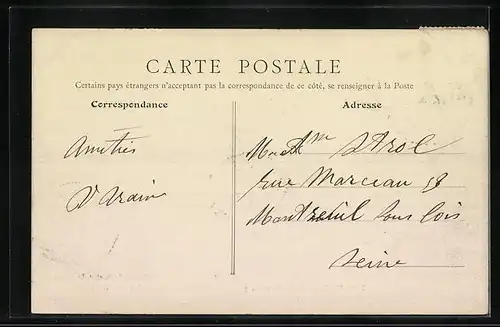 CARTE POSTALE
Certains pays étrangers n'acceptant pas la correspondance de ce côté, se renseigner à la Poste
Correspondance
Adresse
Amitiés
M et Mme Strol
rue Marceau 58
Montreuil sous bois
Seine